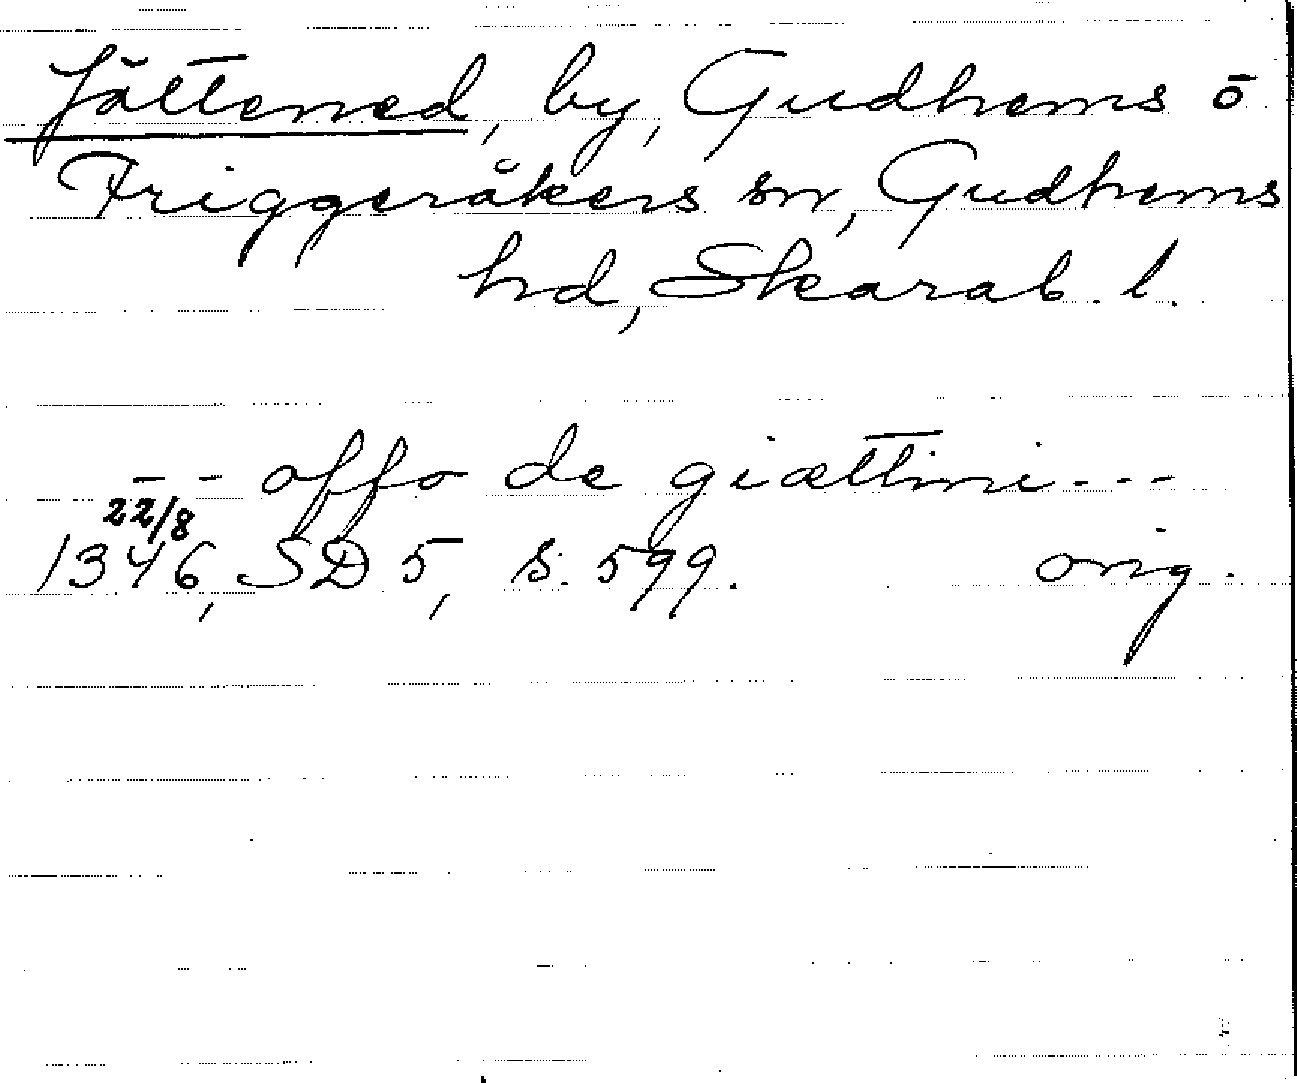 Jättened, by, Gudhems o
Friggeråkers sn, Gudhems
hd, Skarab. l.
-- offo de giættini ---
22/8
1346, SD 5, s. 599. orig.